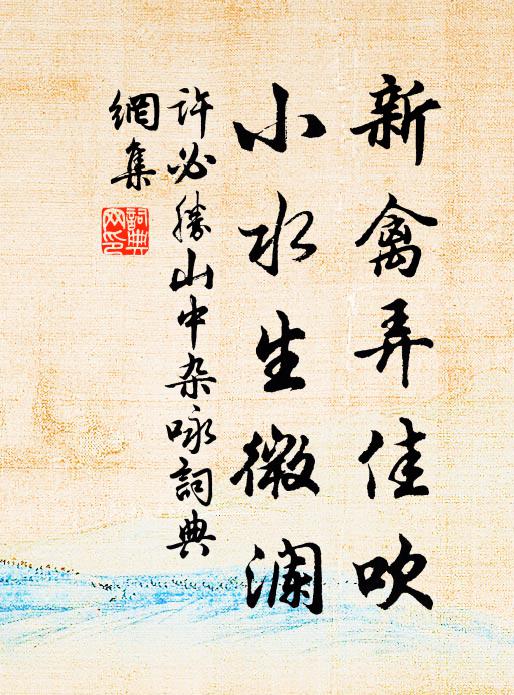 新禽弄佳吹
小水生微澜
许必勝山中杂咏詞典
網集
詞典
网印